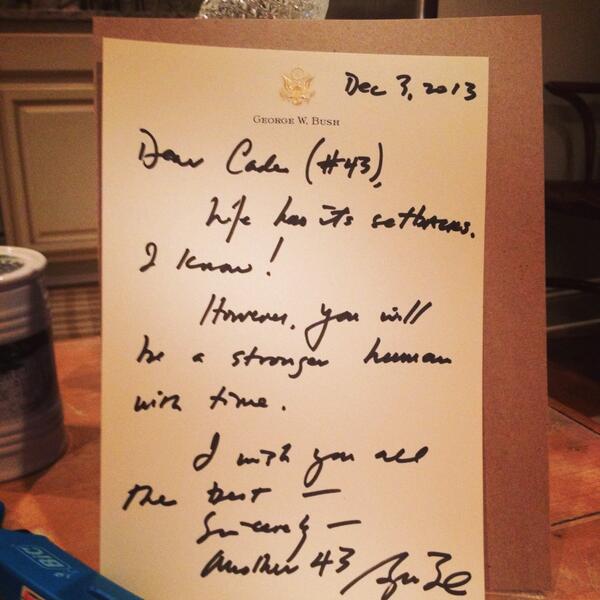 Dec 3, 2013
GEORGE W. BUSH
Dear Cade (#43),
Life has its setbacks.
I know!
However, you will
be a stronger human
with time.
I wish you all
the best —
Sincerely —
another 43
BIC